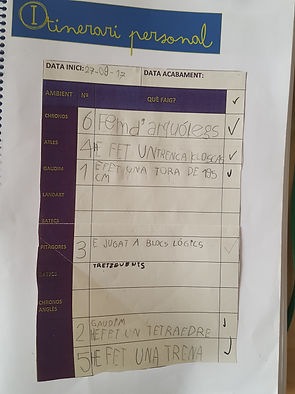 I
Itinerari personal
DATA INICI: 27-09-17 DATA ACABAMENT:
AMBIENT Nº QUÈ FAIG? ✓
CHRONOS 6 Fem d'arquòlegs ✓
ATLES 4 HE FET UN TRENCA ✓
GAUDIM 1 E FET UNA TORA DE 195 CM ✓
LANDART
BATECS
PITÀGORES 3 E JUGAT A BLOCS LÒGICS ✓
CHRONOS ANGLÈS
2 GAUDIM
HE FET UN TETRAEDRE ✓
5 HE FET UNA TRENA ✓